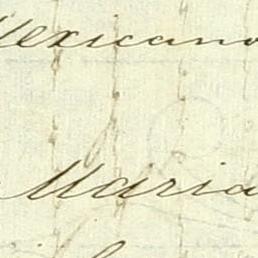 Mexicano
Maria